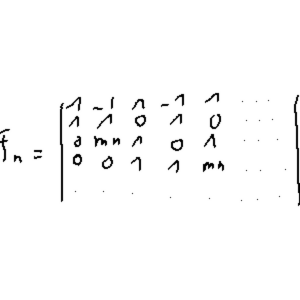 Fn = | 1 -1 1 -1 1 ... |
1 1 0 1 0 ...
0 mn 1 0 1 ...
0 0 1 1 mn ...
. . . . . . .